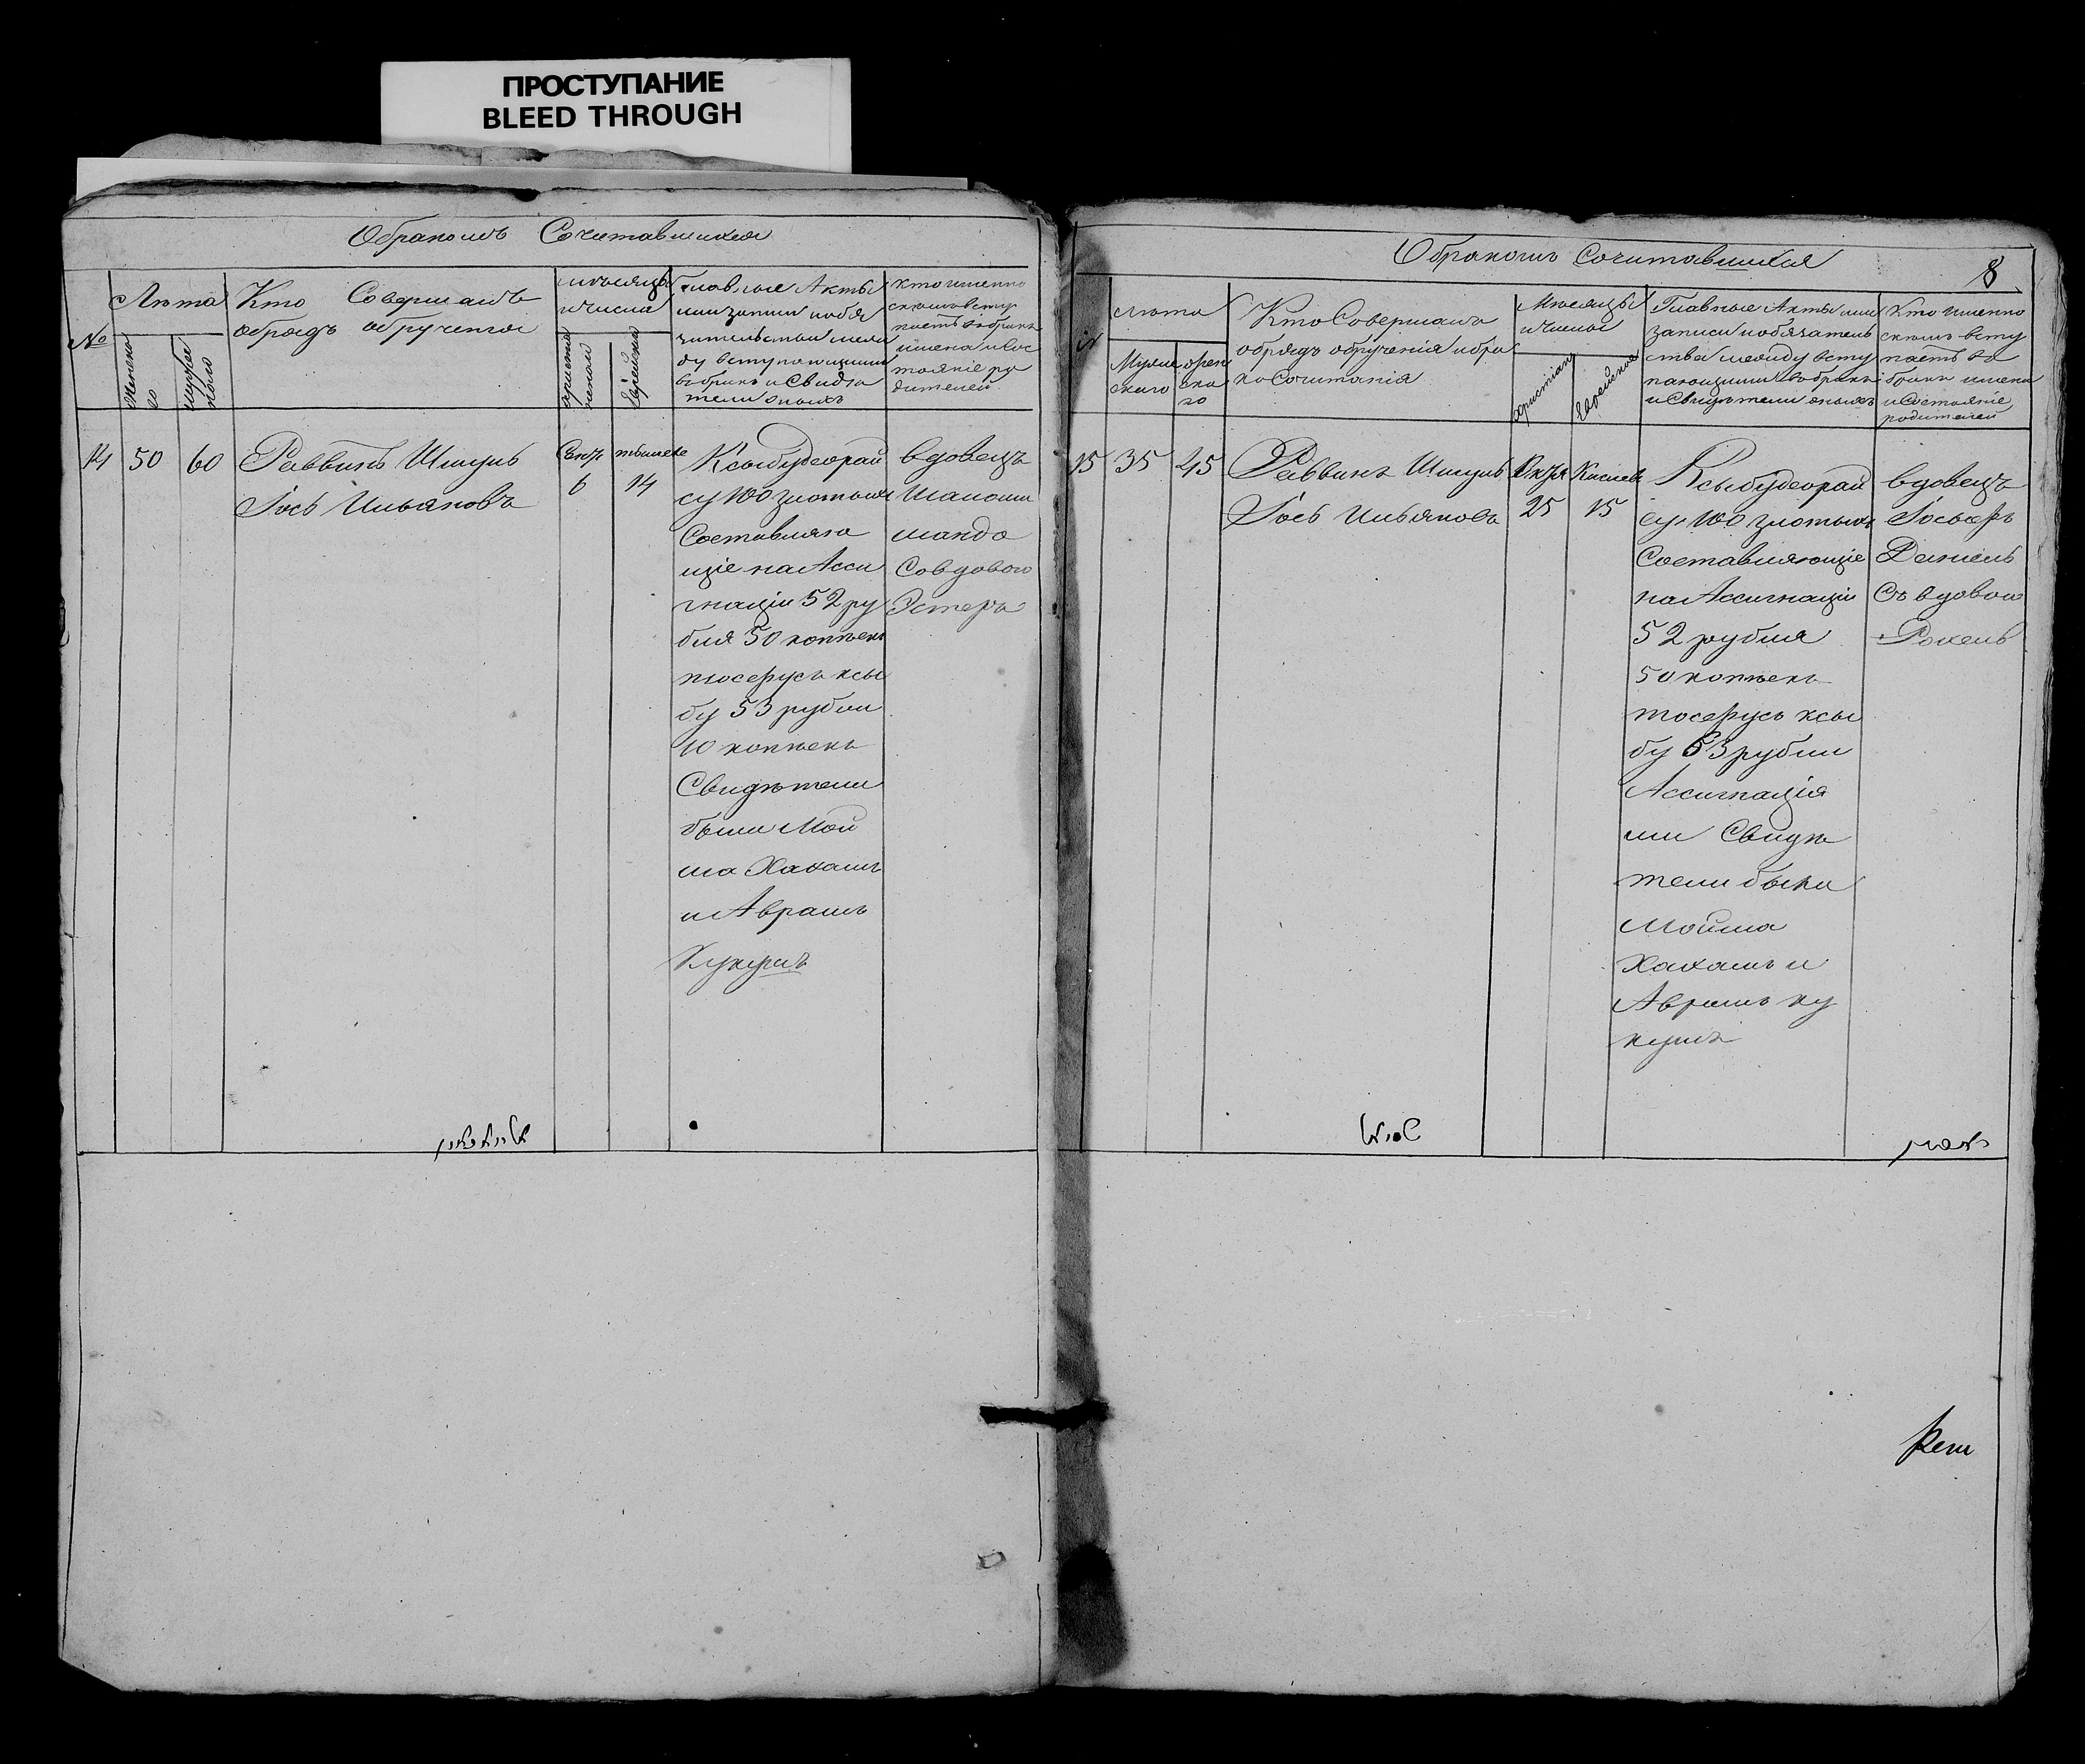 ПРОСТУПАНИЕ
BLEED THROUGH
Обракомъ Сочетавшихся
№
Лѣта
Женско
го
мужес
каго
Кто Совершалъ
обрядъ обрученія
мѣсяцъ
и числа
христіа
нской
Еврейско
Главные Акты
или записи и обя
зательства меж
ду вступающими
въ бракъ и Свидѣ
тели оныхъ
Кто именно
скѣмъ всту
паетъ въ бракъ
имена и сос
тояніе ро
дителей
14
50
60
Раввинъ Шмуль
Іось Ильяновъ
6
14
Ксыбудеорай
су 100 злотыхъ
Составляю
щіе на Асси
гнаціи 52 ру
бля 50 копѣекъ
тосефусъ ксы
бу 53 рубли
10 копѣекъ
Свидѣтели
были Мой
ша Хахамъ
и Аврамъ
Кукушъ
вдовецъ
Шаломъ
Совдовою
Эстеръ
8
Обракомъ Сочитавшихся
лѣта
Муже
скаго
женс
ка
го
Кто Совершалъ
обрядъ обрученія и бра
ко Сочитанія
Мѣсяцы
и числы
Христіан
Еврейской
Главные Акты или
записи и обязатель
ства между всту
пающими въ бракъ
и Свидѣтели оныхъ
Кто именно
скѣмъ всту
паетъ во
бракъ имена
и Состояніе
родителей
15
35
45
Раввинъ Шмуль
Іось Ильяновъ
25
Кислевъ
15
Ксыбудеорай
су 100 злотыхъ
Составляющіе
на Ассигнаціи
52 рубля
50 копѣекъ
тосефусъ ксы
бу 53 рубли
Ассигнація
ми Свидѣ
тели были
Мойша
Хахамъ и
Аврамъ ку
кушъ
вдовецъ
Іосьефъ
Даніель
Со вдовою
Рохель